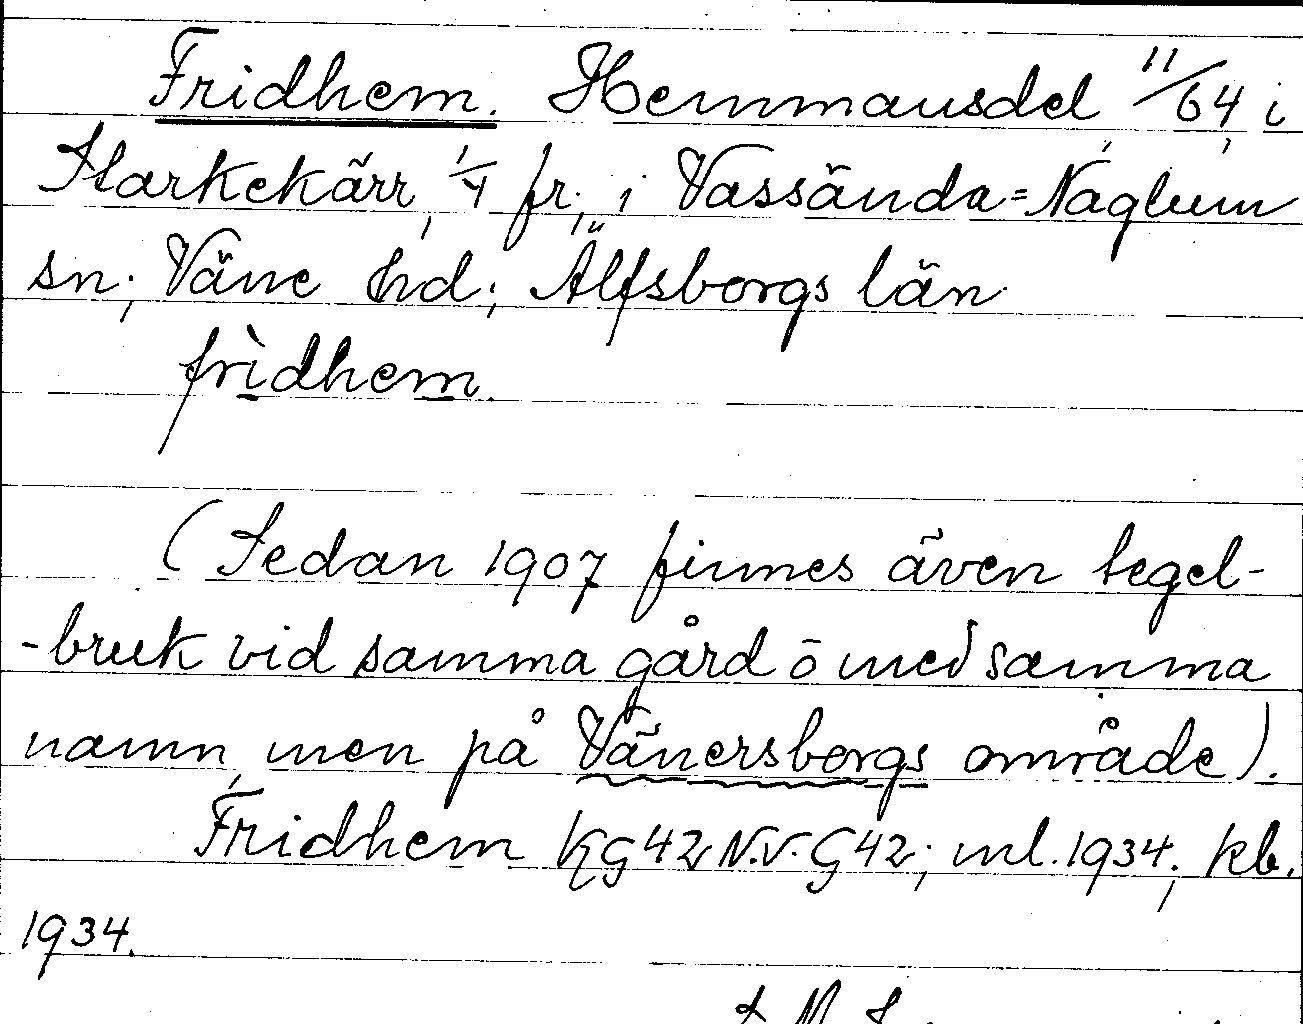 Fridhem. Hemmansdel 11/64, i
Starkekärr, 1/4 fr., i Vassända=Naglum
sn; Väne hd; Älfsborgs län.
frìdhem.
(Sedan 1907 finnes även tegel-
-bruk vid samma gård ō med samma
namn, men på Vänersborgs område).
Fridhem KG42 N.V. G42; ml. 1934; kb.
1934.